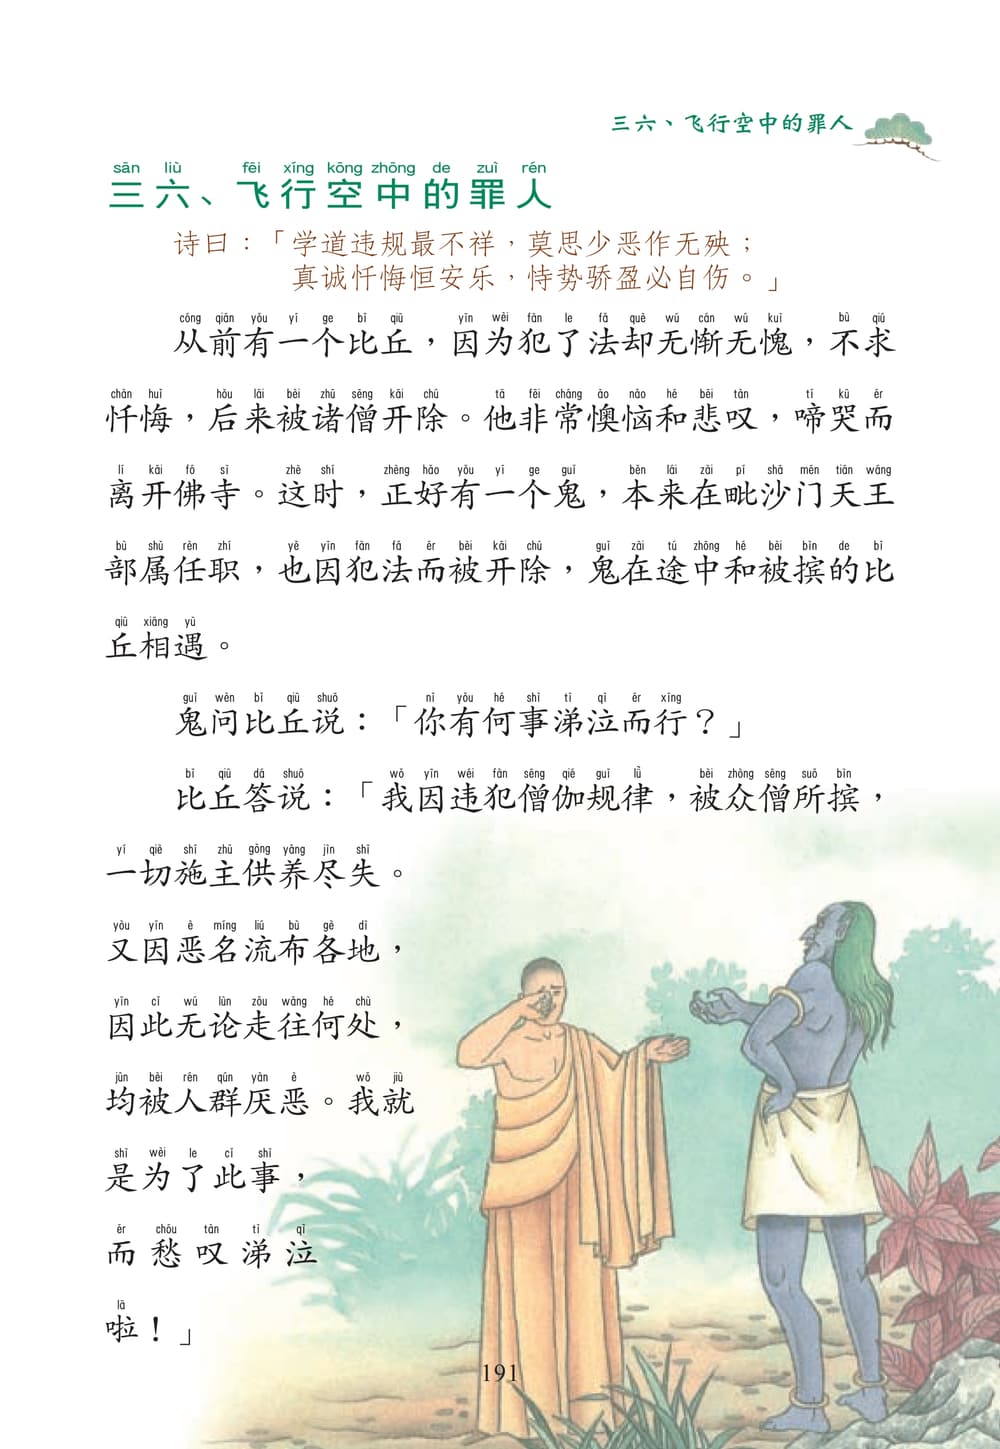 三六、飞行空中的罪人
sān liù fēi xíng kōng zhōng de zuì rén
三六、飞行空中的罪人
诗曰：「学道违规最不祥，莫思少恶作无殃；
真诚忏悔恒安乐，恃势骄盈必自伤。」
cóng qián yǒu yí ge bǐ qiū yīn wèi fàn le fǎ què wú cán wú kuì bù qiú
从前有一个比丘，因为犯了法却无惭无愧，不求
chàn huǐ hòu lái bèi zhū sēng kāi chú tā fēi cháng ào nǎo hé bēi tàn tí kū ér
忏悔，后来被诸僧开除。他非常懊恼和悲叹，啼哭而
lí kāi fó sì zhè shí zhèng hǎo yǒu yí ge guǐ běn lái zài pí shā mén tiān wáng
离开佛寺。这时，正好有一个鬼，本来在毗沙门天王
bù shǔ rèn zhí yě yīn fàn fǎ ér bèi kāi chú guǐ zài tú zhōng hé bèi bìn de bǐ
部属任职，也因犯法而被开除，鬼在途中和被摈的比
qiū xiāng yù
丘相遇。
guǐ wèn bǐ qiū shuō nǐ yǒu hé shì tì qì ér xíng
鬼问比丘说：「你有何事涕泣而行？」
bǐ qiū dá shuō wǒ yīn wéi fàn sēng qié guī lǜ bèi zhòng sēng suǒ bìn
比丘答说：「我因违犯僧伽规律，被众僧所摈，
yí qiè shī zhǔ gòng yǎng jìn shī
一切施主供养尽失。
yòu yīn è míng liú bù gè dì
又因恶名流布各地，
yīn cǐ wú lùn zǒu wǎng hé chù
因此无论走往何处，
jūn bèi rén qún yàn è wǒ jiù
均被人群厌恶。我就
shì wèi le cǐ shì
是为了此事，
ér chóu tàn tì qì
而愁叹涕泣
lā
啦！」
191